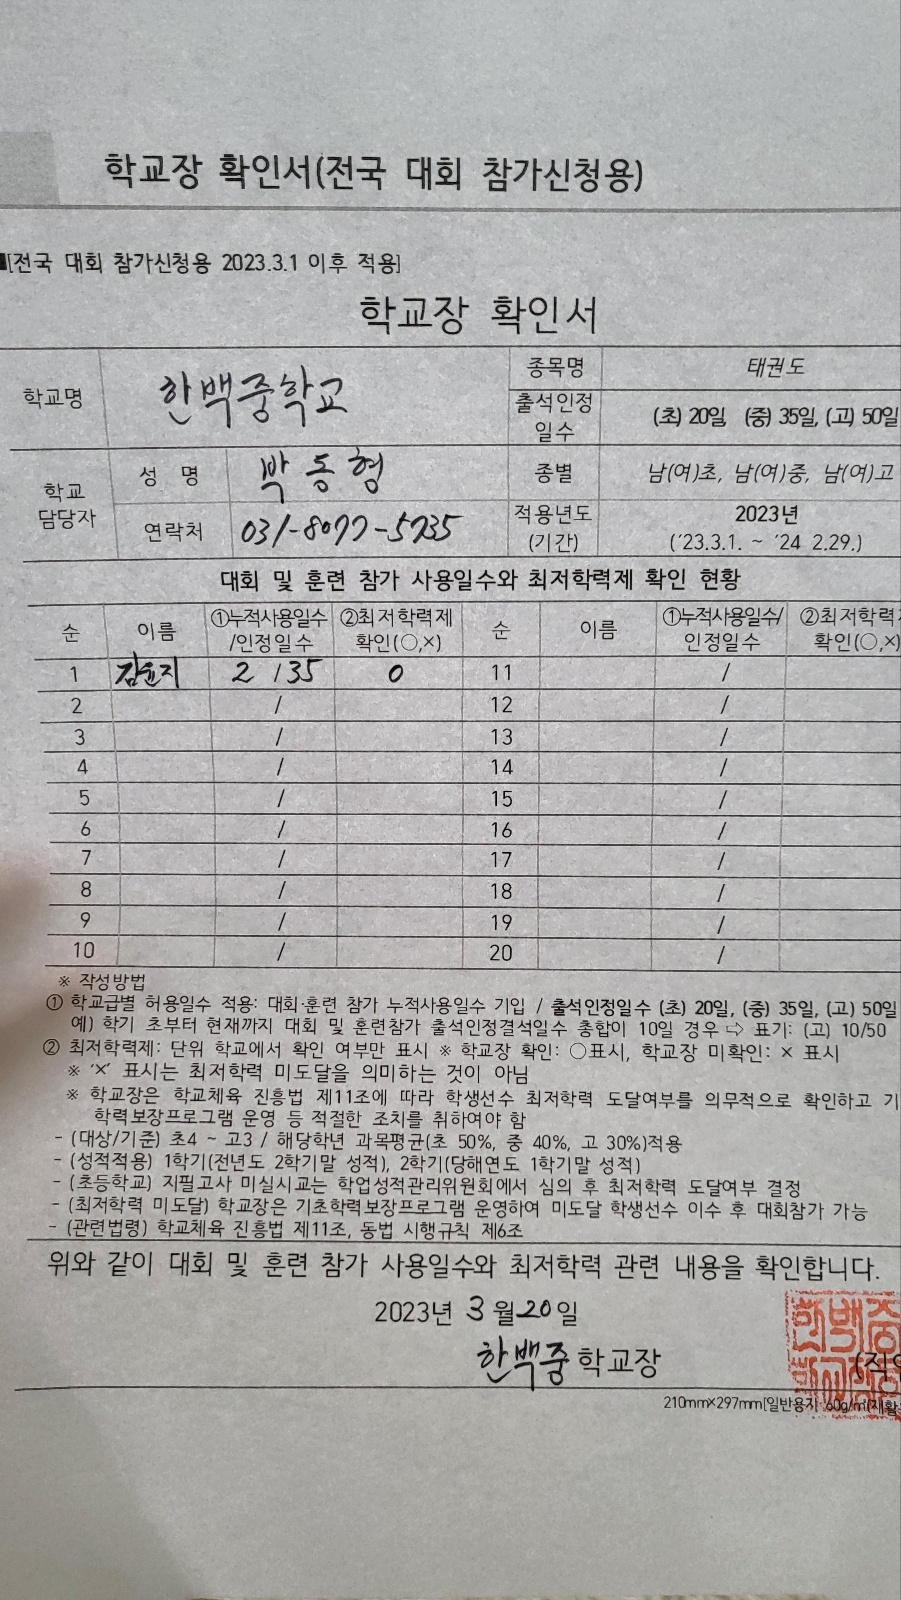 학교장 확인서(전국 대회 참가신청용)
[전국 대회 참가신청용 2023.3.1 이후 적용]
학교장 확인서
학교명 한백중학교 종목명 태권도
출석인정 일수 (초) 20일, (중) 35일, (고) 50일
학교 담당자 성 명 박동형 종별 남(여)초, 남(여)중, 남(여)고
연락처 031-8077-5735 적용년도 (기간) 2023년 ('23.3.1. ~ '24 2.29.)
대회 및 훈련 참가 사용일수와 최저학력제 확인 현황
순 이름 ①누적사용일수/인정일수 ②최저학력제 확인(○,×) 순 이름 ①누적사용일수/인정일수 ②최저학력 확인(○,×)
1 김윤지 2 / 35 0 11 /
2 / 12 /
3 / 13 /
4 / 14 /
5 / 15 /
6 / 16 /
7 / 17 /
8 / 18 /
9 / 19 /
10 / 20 /
※ 작성방법
① 학교급별 허용일수 적용: 대회·훈련 참가 누적사용일수 기입 / 출석인정일수 (초) 20일, (중) 35일, (고) 50일
예) 학기 초부터 현재까지 대회 및 훈련참가 출석인정결석일수 총합이 10일 경우 ⇨ 표기: (고) 10/50
② 최저학력제: 단위 학교에서 확인 여부만 표시 ※ 학교장 확인: ○표시, 학교장 미확인: × 표시
※ '×' 표시는 최저학력 미도달을 의미하는 것이 아님
※ 학교장은 학교체육 진흥법 제11조에 따라 학생선수 최저학력 도달여부를 의무적으로 확인하고 기
학력보장프로그램 운영 등 적절한 조치를 취하여야 함
- (대상/기준) 초4 ~ 고3 / 해당학년 과목평균(초 50%, 중 40%, 고 30%)적용
- (성적적용) 1학기(전년도 2학기말 성적), 2학기(당해연도 1학기말 성적)
- (초등학교) 지필고사 미실시교는 학업성적관리위원회에서 심의 후 최저학력 도달여부 결정
- (최저학력 미도달) 학교장은 기초학력보장프로그램 운영하여 미도달 학생선수 이수 후 대회참가 가능
- (관련법령) 학교체육 진흥법 제11조, 동법 시행규칙 제6조
위와 같이 대회 및 훈련 참가 사용일수와 최저학력 관련 내용을 확인합니다.
2023년 3월 20일
한백중 학교장 (직인
210mm×297mm[일반용지 60g/㎡(재활